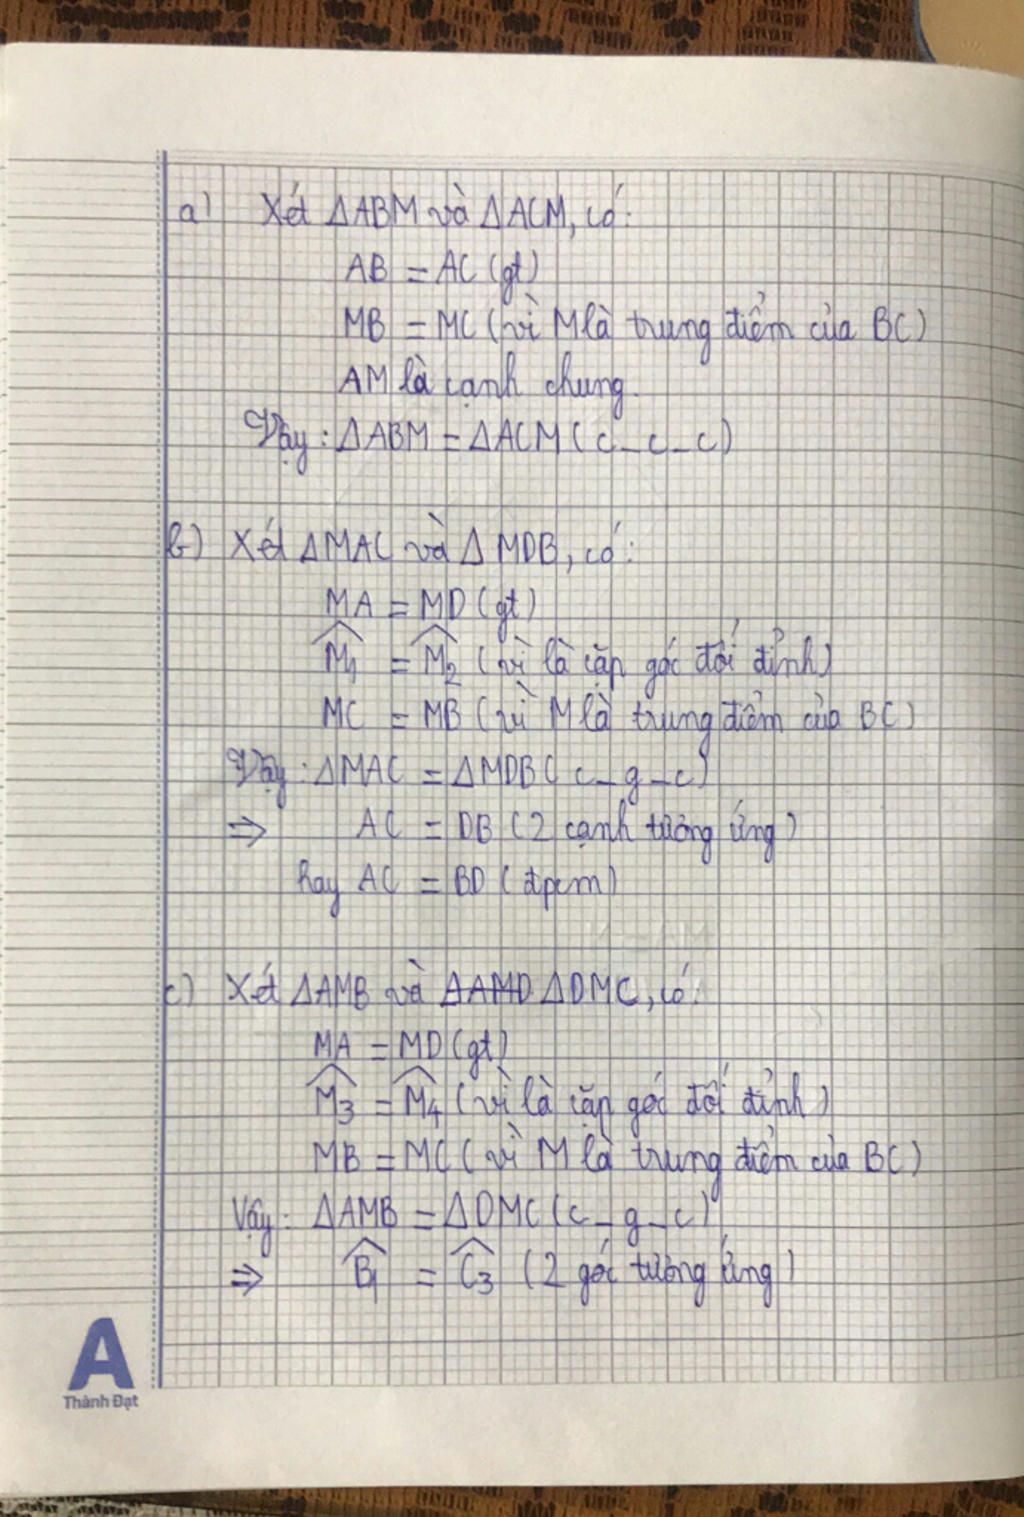 a) Xét ΔABM và ΔACM, có:
AB = AC (gt)
MB = MC (vì M là trung điểm của BC)
AM là cạnh chung.
Vậy: ΔABM = ΔACM (c_c_c)
b) Xét ΔMAC và ΔMDB, có:
MA = MD (gt)
M̂₁ = M̂₂ (vì là cặp góc đối đỉnh)
MC = MB (vì M là trung điểm của BC)
Vậy: ΔMAC = ΔMDB (c_g_c)
⇒ AC = DB (2 cạnh tương ứng)
hay AC = BD (đpcm)
c) Xét ΔAMB và ΔAMD ΔDMC, có:
MA = MD (gt)
M̂₃ = M̂₄ (vì là cặp góc đối đỉnh)
MB = MC (vì M là trung điểm của BC)
Vậy: ΔAMB = ΔDMC (c_g_c)
⇒ B̂₁ = Ĉ₃ (2 góc tương ứng)
A
Thành Đạt